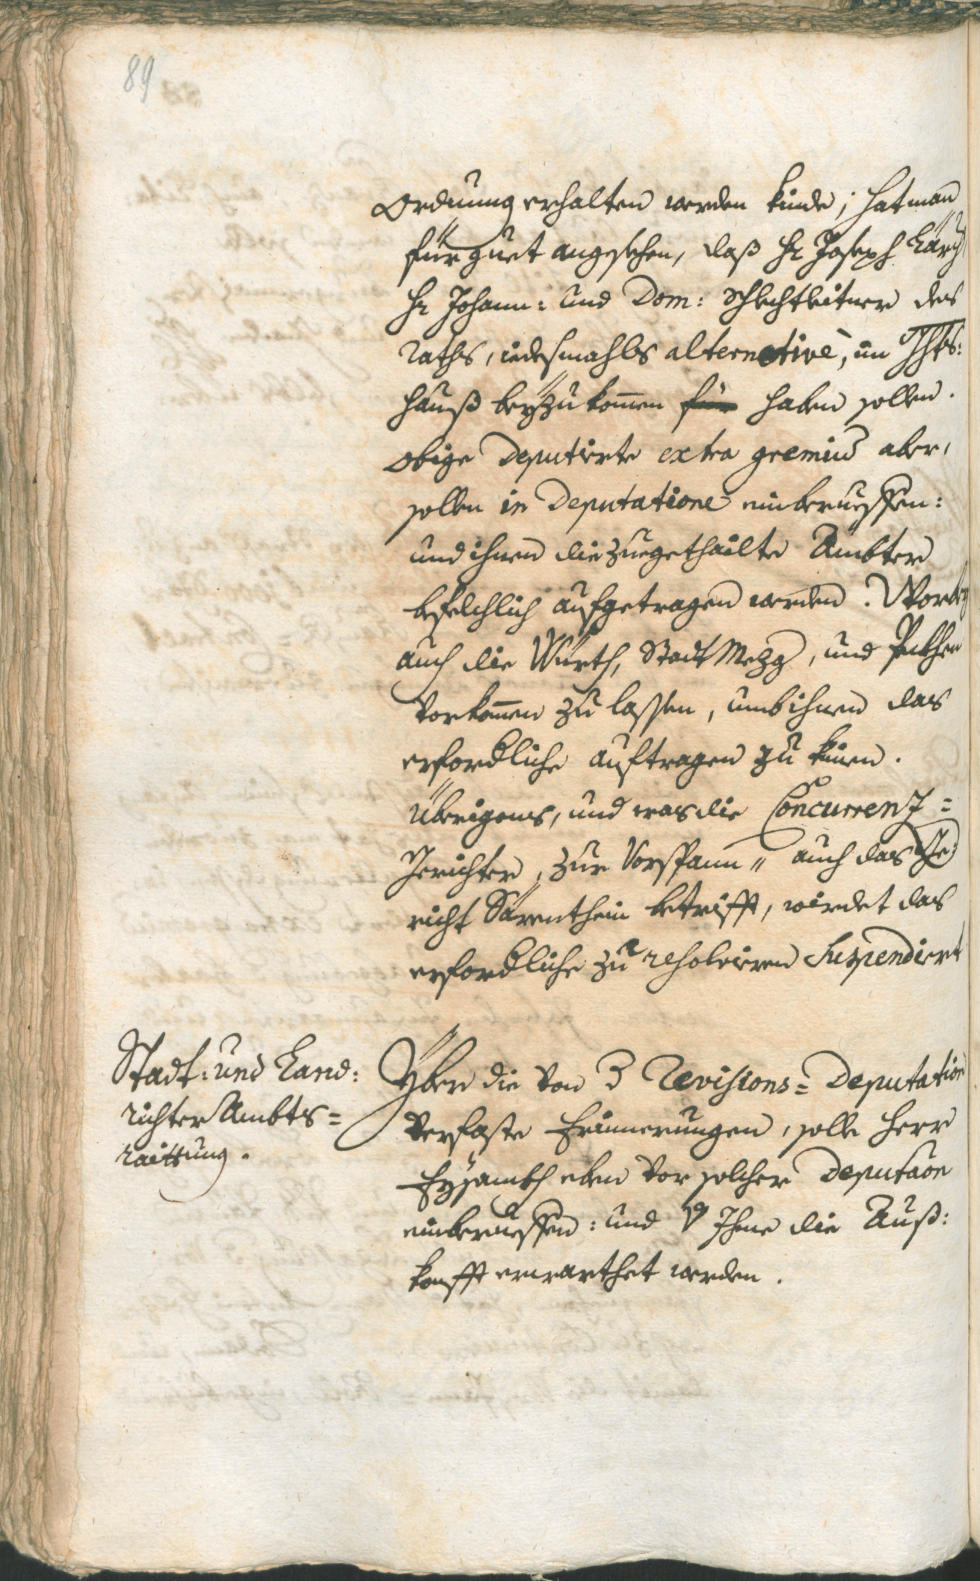 89
Ordnung erhalten werden kinde; hat man
für guet angesehen, daß Hr Joseph
Hr Johann: und Dom: Schlechtleitner des
raths, iedesmahls alternativè, im
hauß beyzukom̄en für haben sollen.
obige Deputirte extra gremiū aber,
sollen in Deputatione einberueffen:
und ihnen die zuegethailte Ämbter
befelchlich aufgetragen werden. Worbey
auch die Würth, Stadt Mezg, und Pekhen
vorkom̄en zu lassen, umb ihnen das
erfordliche auftragen zu kinen.
Übrigens, und was die Concurrenz=
Gerichter, zur Vorspann" auch das Ge:
richt Särenthein betrifft, wirdet das
erfordliche zu resolvieren suspendiert
Stadt: und Land:
richter Ambts=
raittung.
Yber die von 3 Revisions=Deputation
verfaste Erinnerungen, solle Herr
Eysambth eben vor solcher Deputaōn
einberueffen: und Ihme die Auß:
konfft erwarthet werden.